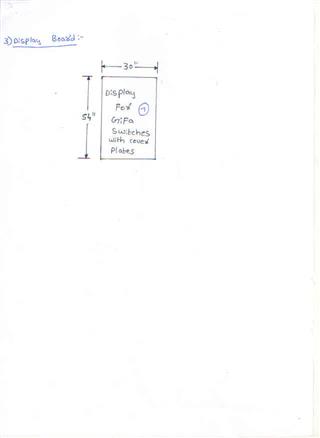 3) Display Board:-
30"
54"
Display
For 1
GiFa
Switches
with cover
Plates